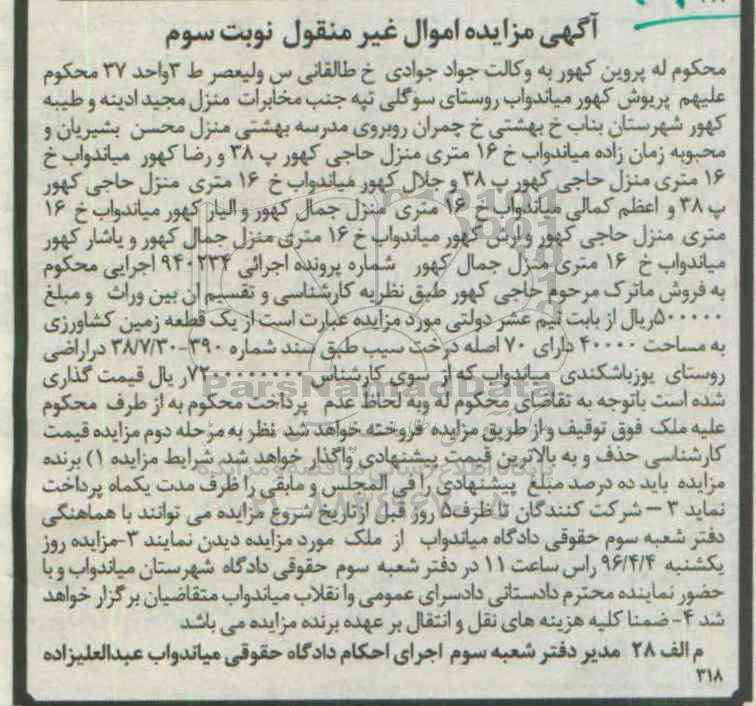 آگهی مزایده اموال غیر منقول نوبت سوم
محکوم له پروین کهور به وکالت جواد جوادی خ طالقانی س ولیعصر ط ۳واحد ۳۷ محکوم
علیهم پریوش کهور میاندواب روستای سوگلی تپه جنب مخابرات منزل مجید ادینه و طیبه
کهور شهرستان بناب خ بهشتی خ چمران روبروی مدرسه بهشتی منزل محسن بشیریان و
محبوبه زمان زاده میاندواب خ ۱۶ متری منزل حاجی کهور پ ۳۸ و رضا کهور میاندواب خ
۱۶ متری منزل حاجی کهور پ ۳۸ و جلال کهور میاندواب خ ۱۶ متری منزل حاجی کهور
پ ۳۸ و اعظم کمالی میاندواب خ ۱۶ متری منزل جمال کهور و الیار کهور میاندواب خ ۱۶
متری منزل حاجی کهور و ارش کهور میاندواب خ ۱۶ متری منزل جمال کهور و یاشار کهور
میاندواب خ ۱۶ متری منزل جمال کهور شماره پرونده اجرائی ۹۴۰۲۳۴ اجرایی محکوم
به فروش ماترک مرحوم حاجی کهور طبق نظریه کارشناسی و تقسیم آن بین وراث و مبلغ
۵۰۰۰۰۰ریال از بابت نیم عشر دولتی مورد مزایده عبارت است از یک قطعه زمین کشاورزی
به مساحت ۴۰۰۰۰ دارای ۷۰ اصله درخت سیب طبق سند شماره ۳۹۰-۳۸/۷/۳۰ دراراضی
روستای یوزباشکندی میاندواب که از سوی کارشناس ریال قیمت گذاری
شده است باتوجه به تقاضای محکوم له وبه لحاظ عدم پرداخت محکوم به از طرف محکوم
علیه ملک فوق توقیف و از طریق مزایده فروخته خواهد شد نظر به مرحله دوم مزایده قیمت
کارشناسی حذف و به بالاترین قیمت پیشنهادی واگذار خواهد شد. شرایط مزایده ۱) برنده
مزایده باید ده درصد مبلغ پیشنهادی را فی المجلس و مابقی را ظرف مدت یکماه پرداخت
نماید ۲ – شرکت کنندگان تا ظرف۵ روز قبل ازتاریخ شروع مزایده می توانند با هماهنگی
دفتر شعبه سوم حقوقی دادگاه میاندواب از ملک مورد مزایده دیدن نمایند ۳-مزایده روز
یکشنبه ۹۶/۴/۴ راس ساعت ۱۱ در دفتر شعبه سوم حقوقی دادگاه شهرستان میاندواب و با
حضور نماینده محترم دادستانی دادسرای عمومی وا نقلاب میاندواب متقاضیان برگزار خواهد
شد ۴- ضمنا کلیه هزینه های نقل و انتقال بر عهده برنده مزایده می باشد
م الف ۲۸ مدیر دفتر شعبه سوم اجرای احکام دادگاه حقوقی میاندواب عبدالعلیزاده
۳۱۸
ParsNamadData